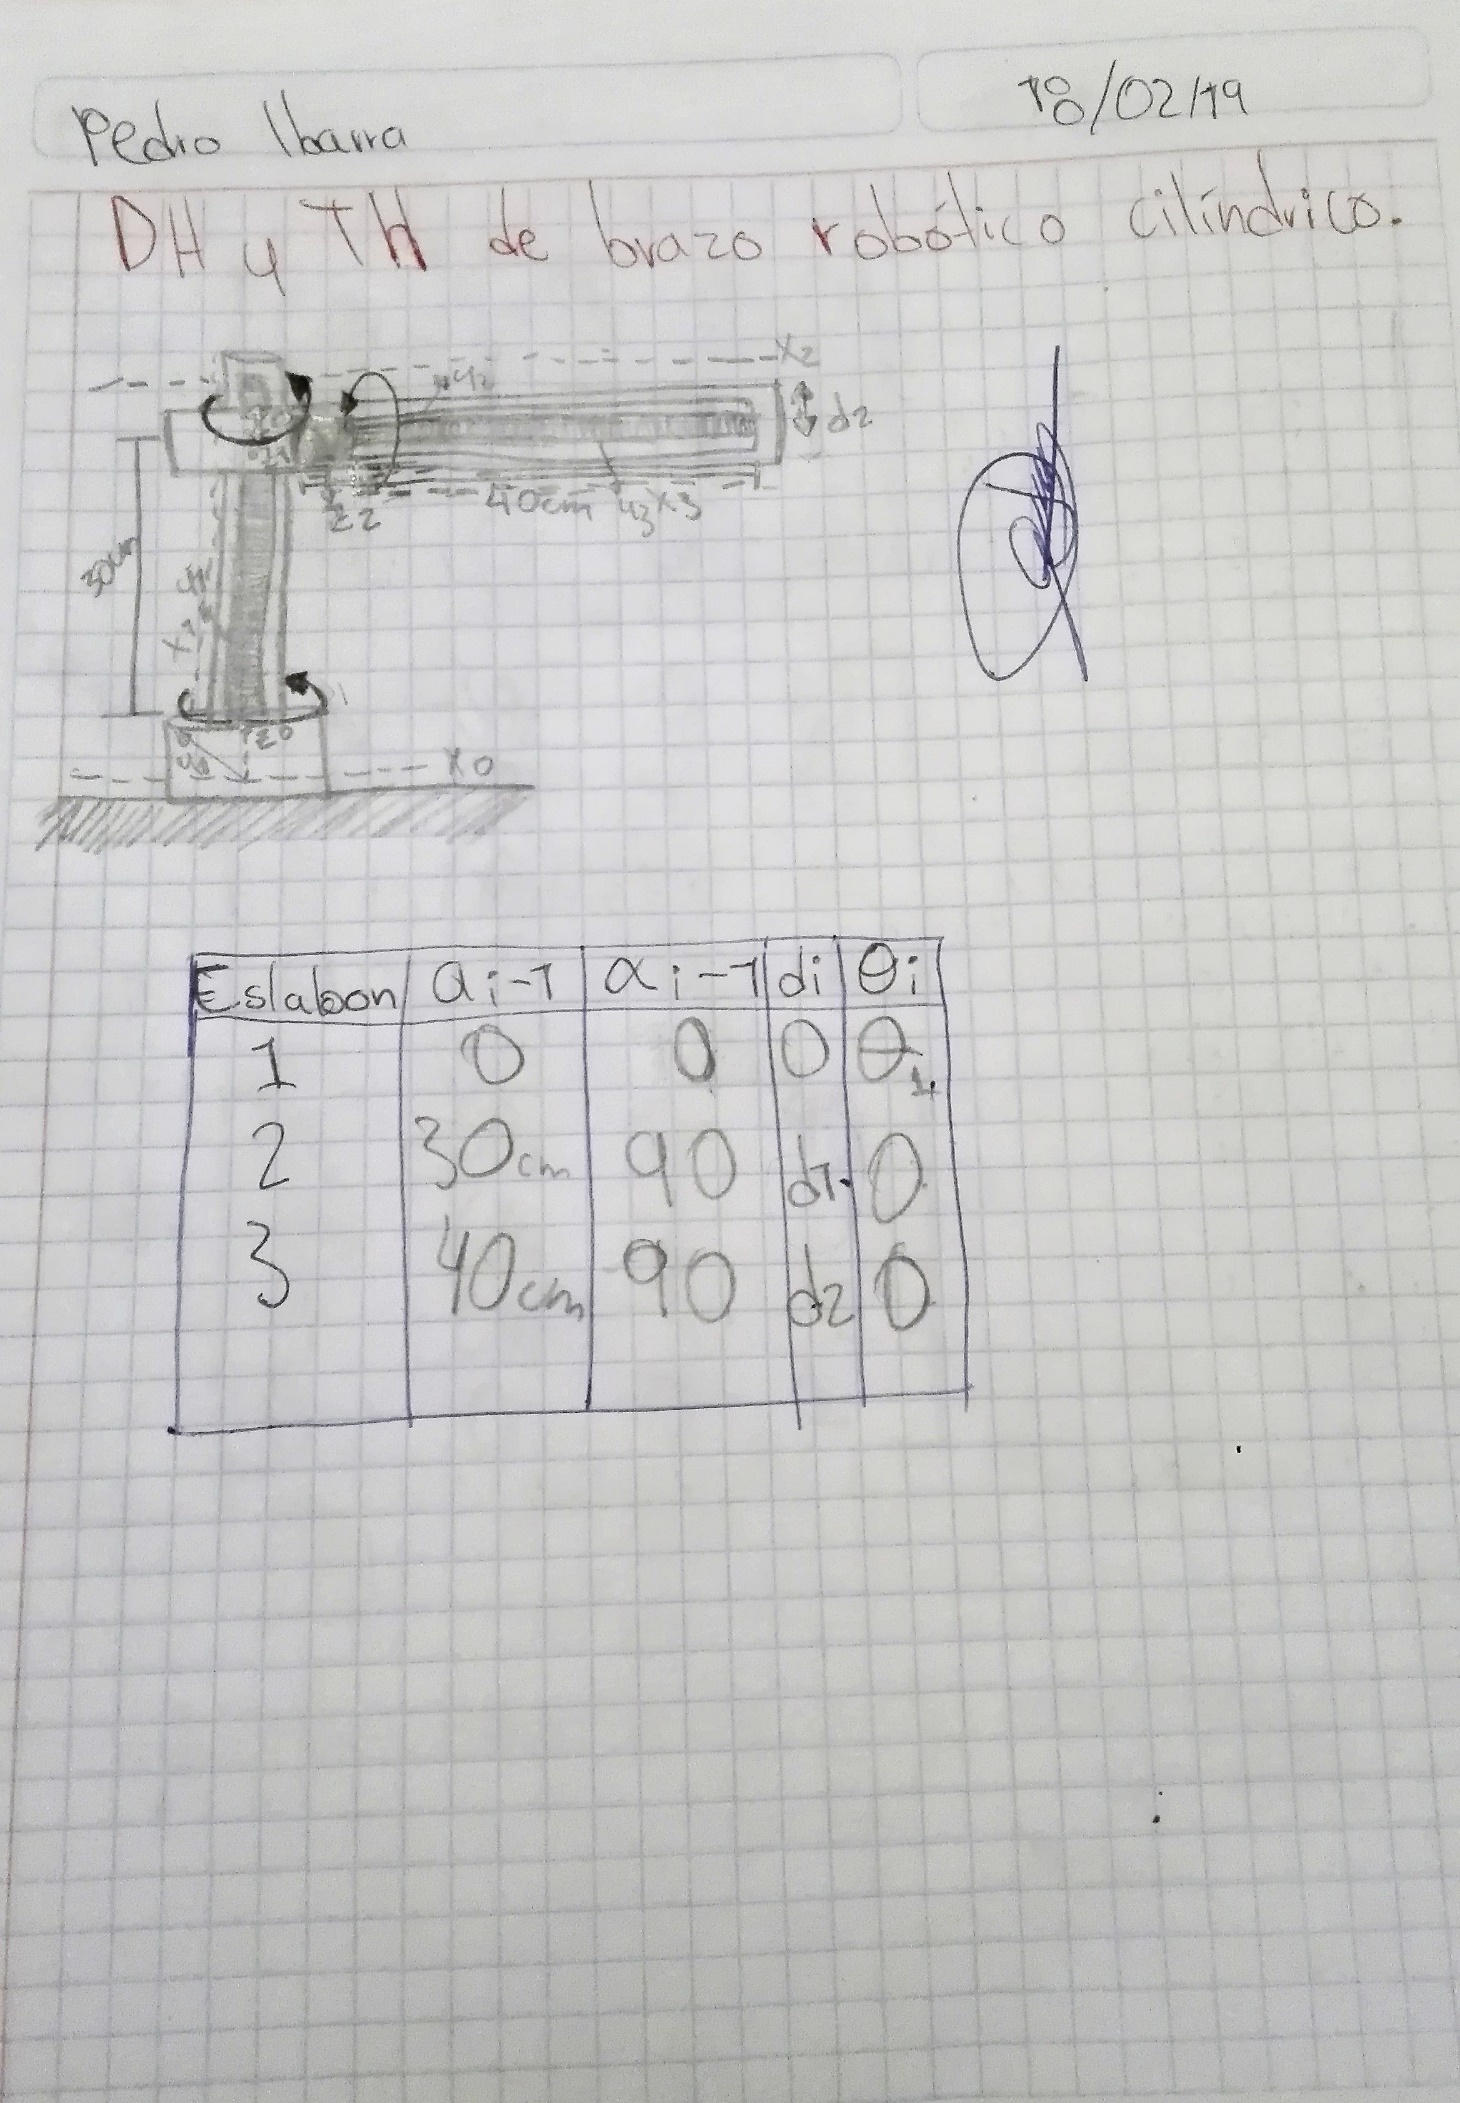 Pedro Ibarra
18/02/19
DH y TH de brazo robótico cilíndrico.
X2
y2
d2
40cm y3 X3
z2
30cm
X1
z0
y0
X0
Eslabon ai-1 αi-1 di θi
1 0 0 0 θ1.
2 30cm 90 d1. 0
3 40cm 90 d2 0